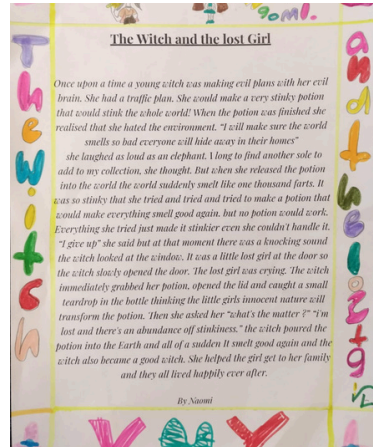 The Witch and the lost Girl
Once upon a time a young witch was making evil plans with her evil
brain. She had a traffic plan. She would make a very stinky potion
that would stink the whole world! When the potion was finished she
realised that she hated the environment. "I will make sure the world
smells so bad everyone will hide away in their homes"
she laughed as loud as an elephant. A long to find another sole to
add to my collection, she thought. But when she released the potion
into the world the world suddenly smelt like one thousand farts. It
was so stinky that she tried and tried and tried to make a potion that
would make everything smell good again. but no potion would work.
Everything she tried just made it stinkier even she couldn't handle it.
"I give up" she said but at that moment there was a knocking sound
the witch looked at the window. It was a little lost girl at the door so
the witch slowly opened the door. The lost girl was crying. The witch
immediately grabbed her potion, opened the lid and caught a small
teardrop in the bottle thinking the little girls innocent nature will
transform the potion. Then she asked her "what's the matter ?" "i'm
lost and there's an abundance off stinkiness." the witch poured the
potion into the Earth and all of a sudden It smelt good again and the
witch also became a good witch. She helped the girl get to her family
and they all lived happily ever after.
By Naomi
The witch